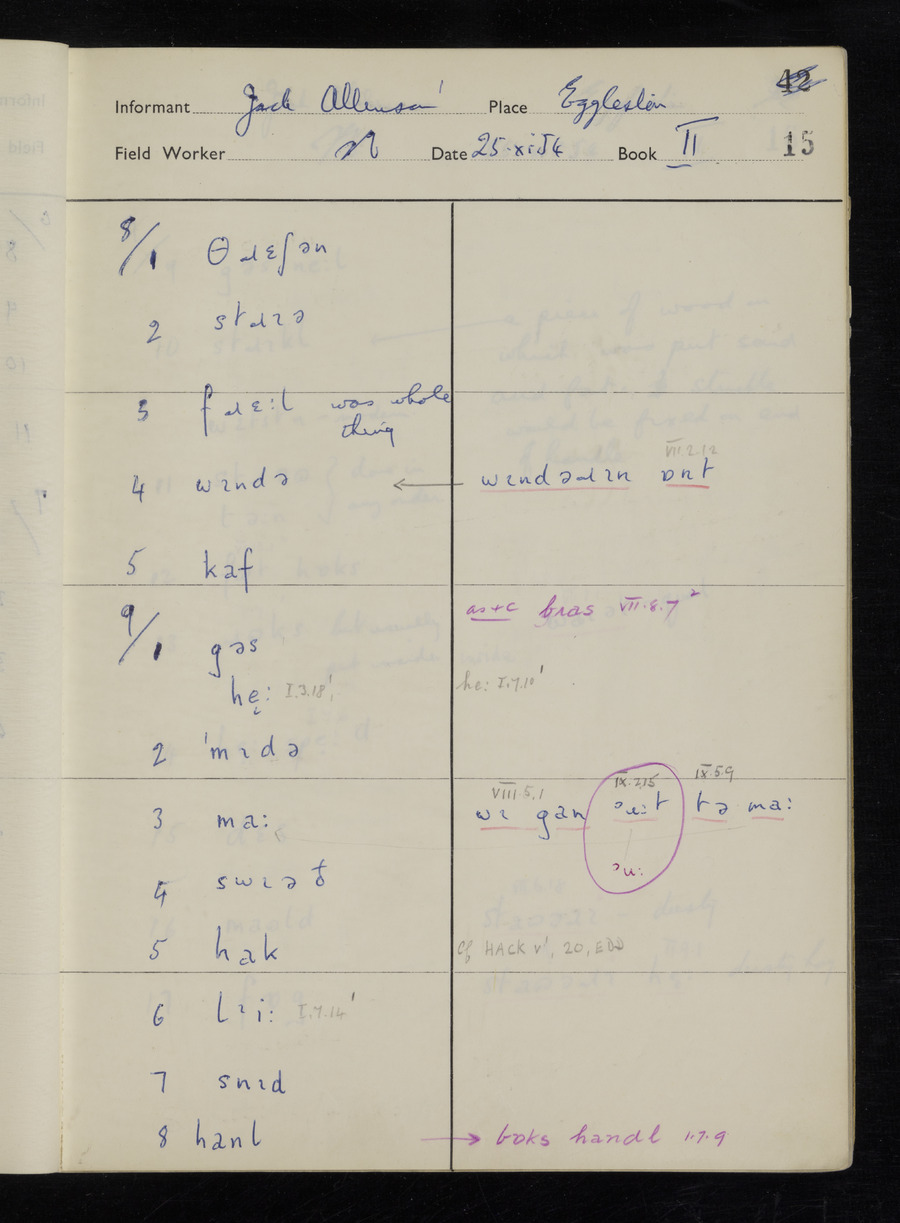 42
Informant Jack Allinson Place Eggleston
Field Worker N Date 25.xi.54 Book II 15
8/1 θɹɛʃən
2 stɹɪə
3 fɹɛ:l was whole
thing
4 wɪndə ← wɪndəɹɪn ɒnt VII.2.12
5 kaf
9/1 gəs as + c bras VII.8.7²
hę: I.3.18¹, he: I.7.10¹
2 'mɪdə
3 ma: wɪ gan əu:t tə ma: VIII.5.1 IX.2.15 IX.5.9
əu:
4 swɪəð
5 hak cf HACK v¹, 20, EDD
6 lɪi: I.7.14¹
7 snɪd
8 hanl → bɒks handl 1.7.9